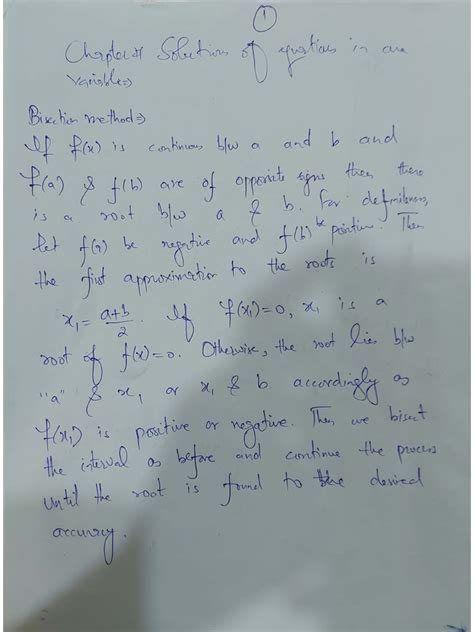 1
Chapter Solutions of equations in one
variable⇒
Bisection method⇒
If f(x) is continuous b/w a and b and
f(a) & f(b) are of opposite signs then there
is a root b/w a & b. For definiteness,
let f(a) be negative and f(b) be positive. Then
the first approximation to the roots is
x₁ = a+b/2. If f(x₁)=0, x₁ is a
root of f(x)=0. Otherwise, the root lies b/w
"a" & x₁ or x₁ & b accordingly as
f(x₁) is positive or negative. Then we bisect
the interval as before and continue the process
until the root is found to the desired
accuracy.